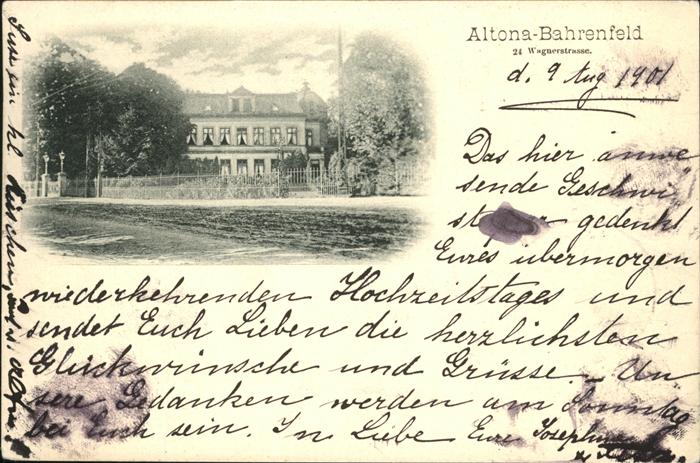 Altona-Bahrenfeld
24 Wagnerstrasse.
d. 9 Aug 1901
Das hier anwe
sende Geschwi
gedenkt
Eures übermorgen
wiederkehrenden Hochzeitstages und
sendet Euch Lieben die herzlichsten
Glückwünsche und Grüsse. Un
sere Gedanken werden am Sonntag
bei Euch sein. In Liebe Eure